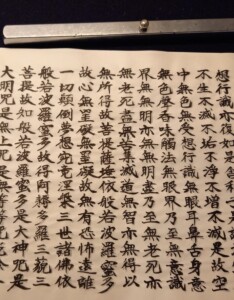 想行識亦復如是舍利子是諸法空相
不生不滅不垢不淨不增不減是故空
中無色無受想行識無眼耳鼻舌身意
無色聲香味觸法無眼界乃至無意識
界無無明亦無無明盡乃至無老死亦
無老死盡無苦集滅道無智亦無得以
無所得故菩提薩埵依般若波羅蜜多
故心無罣礙無罣礙故無有恐怖遠離
一切顛倒夢想究竟涅槃三世諸佛依
般若波羅蜜多故得阿耨多羅三藐三
菩提故知般若波羅蜜多是大神咒是
大明咒是無上咒是無